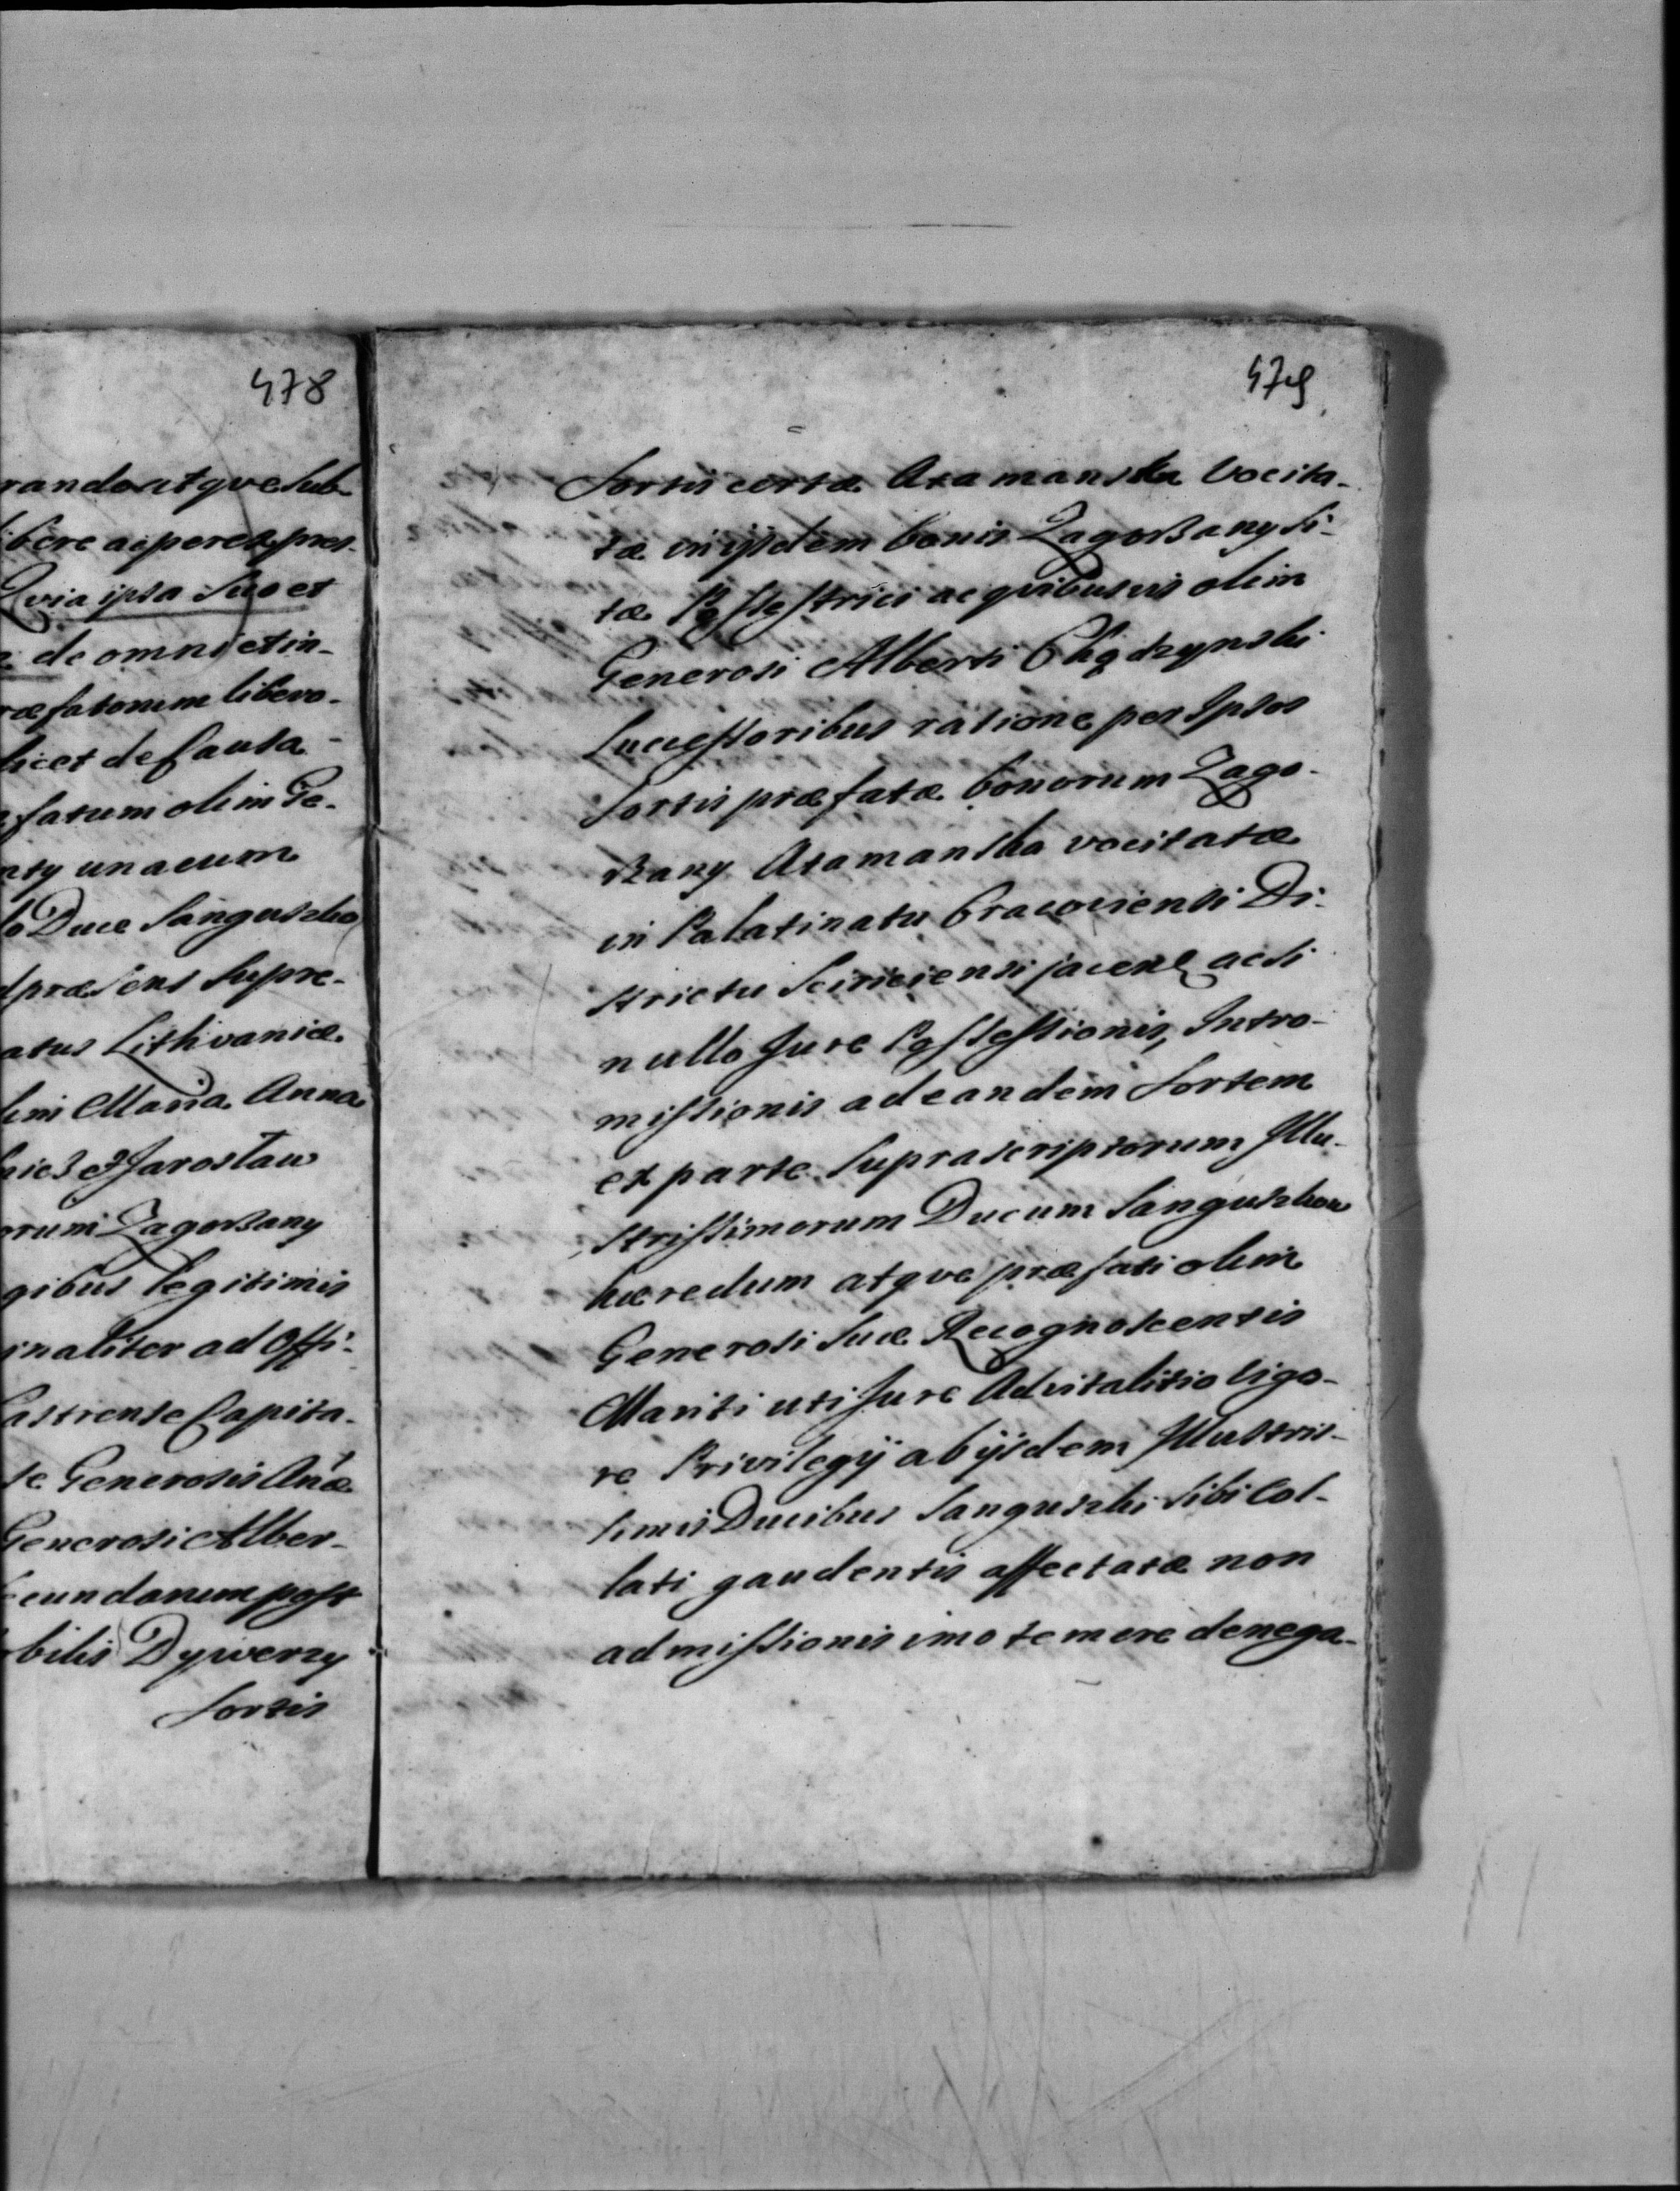 478
randoatqve Sub-
bere ac per expres-
Qvia ipsa Suo et
de omni et in-
ræfatorum libero-
licet de Causa
fatum olim Ge-
nty unacum
Duce Sanguszko
præsens Supre-
atus Lithvaniæ
Maria Anna
et Jarosław
orum Zagorzany
gibus legitimis
inaliter ad Offi-
Castrense Capita-
se Generosis Annæ
Generosi Alber-
ecundarum post
obilis Dywerzy
Sortis
479
Sortis certæ Atamanska Vocita-
tæ in ijsdem bonis Zagorzany Si-
tæ Possestrici ac qvibusvis olim
Generosi Alberti Chądzynski
Successoribus ratione per Ipsos
Sortis præfatæ bonorum Zago-
rzany Atamanska vocitatæ
in Palatinatu Cracoviensi Di-
strictu Sciriciensi jacen ac Si
nullo Jure Possessionis, Intro-
missionis ad eandem Sortem
ex parte Suprascriptorum Illu-
strissimorum Ducum Sanguszkow
hæredum atqve præfati olim
Generosi Suæ Recognoscentis
Mariti uti Jure Advitalitio vigo-
re Privilegij ab ijsdem Illustris-
simis Ducibus Sanguszki Sibi Col-
lati gaudentis affectatæ non
admissionis imo temere denega-